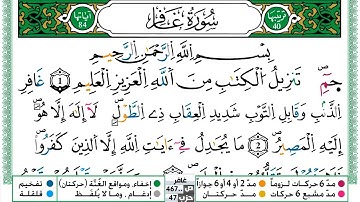 ترتيبها 40
سُورَةُ غَافِر
آياتها 84
بِسْمِ اللَّهِ الرَّحْمَٰنِ الرَّحِيمِ
حمٓ ۝1 تَنزِيلُ الْكِتَٰبِ مِنَ اللَّهِ الْعَزِيزِ الْعَلِيمِ ۝2 غَافِرِ
الذَّنۢبِ وَقَابِلِ التَّوْبِ شَدِيدِ الْعِقَابِ ذِى الطَّوْلِ لَآ إِلَٰهَ إِلَّا هُوَ
إِلَيْهِ الْمَصِيرُ مَا يُجَٰدِلُ فِىٓ ءَايَٰتِ اللَّهِ إِلَّا الَّذِينَ كَفَرُوا۟
مدّ 6 حركات لزوماً مدّ 2 أو 4 أو 6 جوازاً إخفاء، ومواقع الغُنَّة (حركتان) تفخيم
مدّ مشبع 6 حركات مدّ حركتان إدغام، وما لا يُلفَظ قلقلة
غافر
ص 467
حزب 47